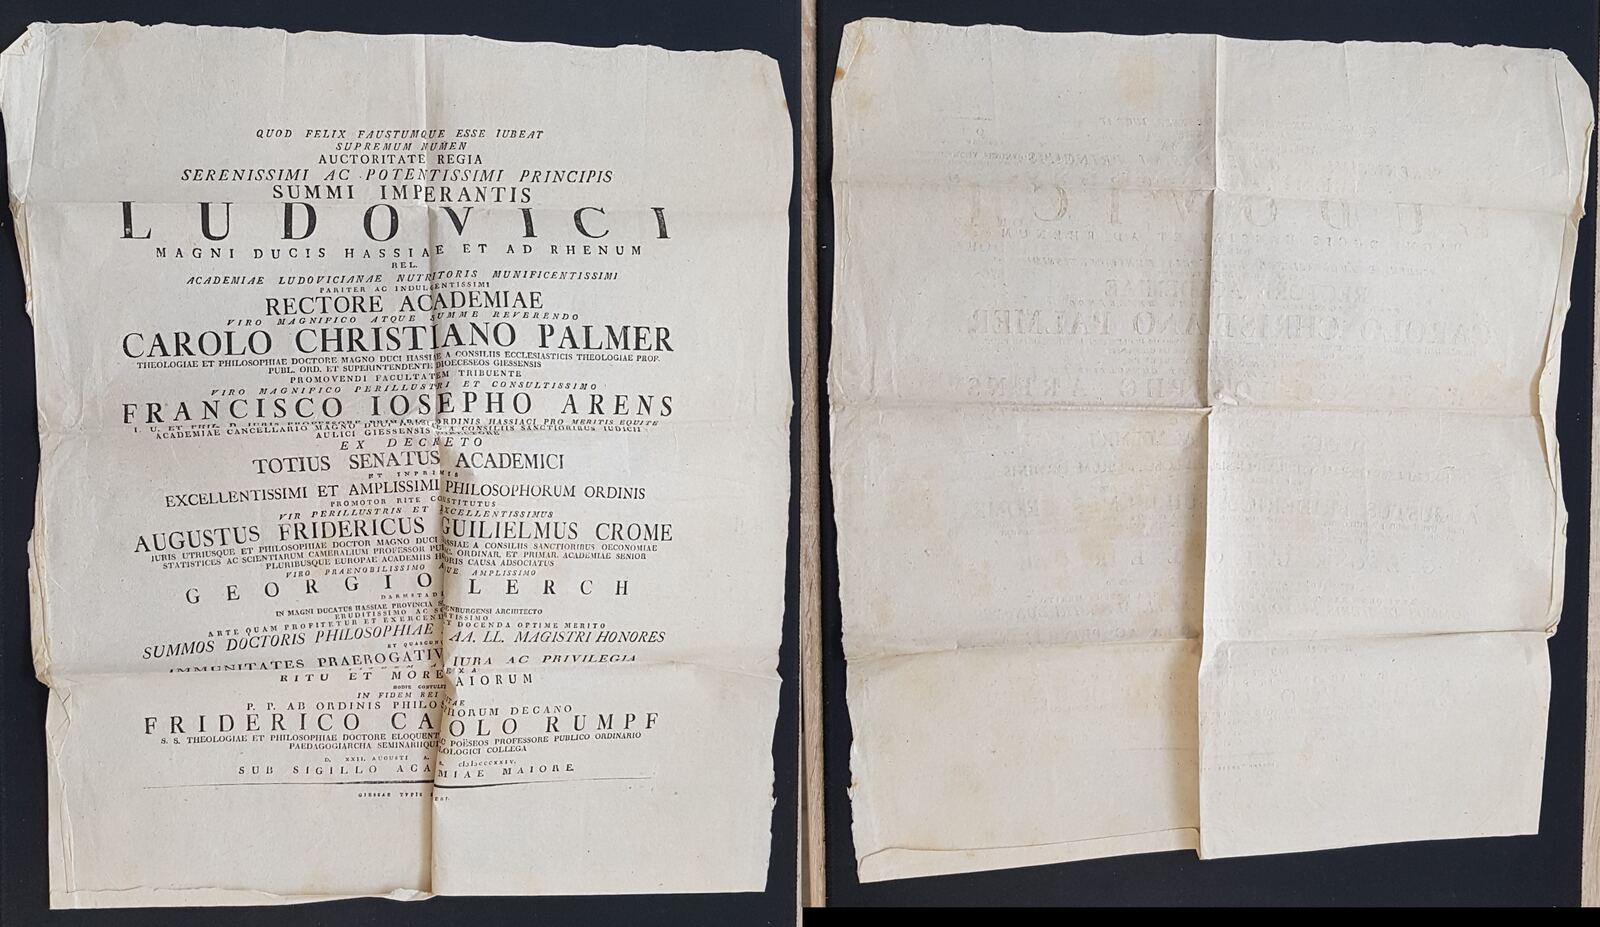 QUOD FELIX FAUSTUMQUE ESSE IUBEAT
SUPREMUM NUMEN
AUCTORITATE REGIA
SERENISSIMI AC POTENTISSIMI PRINCIPIS
SUMMI IMPERANTIS
LUDOVICI
MAGNI DUCIS HASSIAE ET AD RHENUM
REL.
ACADEMIAE LUDOVICIANAE NUTRITORIS MUNIFICENTISSIMI
PARITER AC INDULGENTISSIMI
RECTORE ACADEMIAE
VIRO MAGNIFICO ATQUE SUMME REVERENDO
CAROLO CHRISTIANO PALMER
THEOLOGIAE ET PHILOSOPHIAE DOCTORE MAGNO DUCI HASSIAE A CONSILIIS ECCLESIASTICIS THEOLOGIAE PROF.
PUBL. ORD. ET SUPERINTENDENTE DIOECESEOS GIESSENSIS
PROMOVENDI FACULTATEM TRIBUENTE
VIRO MAGNIFICO PERILLUSTRI ET CONSULTISSIMO
FRANCISCO IOSEPHO ARENS
I. U. ET PHIL. D. IURIS ORDINIS HASSIACI PRO MERITIS EQUITE
ACADEMIAE CANCELLARIO MAGNO A CONSILIIS SANCTIORIBUS IUDICII
AULICI GIESSENSIS
EX DECRETO
TOTIUS SENATUS ACADEMICI
ET INPRIMIS
EXCELLENTISSIMI ET AMPLISSIMI PHILOSOPHORUM ORDINIS
PROMOTOR RITE CONSTITUTUS
VIR PERILLUSTRIS ET EXCELLENTISSIMUS
AUGUSTUS FRIDERICUS GUILIELMUS CROME
IURIS UTRIUSQUE ET PHILOSOPHIAE DOCTOR MAGNO DUCI HASSIAE A CONSILIIS SANCTIORIBUS OECONOMIAE
STATISTICES AC SCIENTIARUM CAMERALIUM PROFESSOR PUBLIC. ORDINAR. ET PRIMAR. ACADEMIAE SENIOR
PLURIBUSQUE EUROPAE ACADEMIIS HONORIS CAUSA ADSOCIATUS
VIRO PRAENOBILISSIMO ATQUE AMPLISSIMO
GEORGIO LERCH
DARMSTADI
IN MAGNI DUCATUS HASSIAE PROVINCIA ENBURGENSI ARCHITECTO
ERUDITISSIMO AC
ARTE QUAM PROFITETUR ET EXERCENDA ET DOCENDA OPTIME MERITO
SUMMOS DOCTORIS PHILOSOPHIAE AA. LL. MAGISTRI HONORES
ET QUAECUN
IMMUNITATES PRAEROGATIV IURA AC PRIVILEGIA
RITU ET MORE MAIORUM
HODIE CONTULIT
IN FIDEM REI ITAE
P. P. AB ORDINIS PHILOSOPHORUM DECANO
FRIDERICO CAROLO RUMPF
S. S. THEOLOGIAE ET PHILOSOPHIAE DOCTORE ELOQUENT POËSEOS PROFESSORE PUBLICO ORDINARIO
PAEDAGOGIARCHA SEMINARIIQUE PHILOLOGICI COLLEGA
D. XXII. AUGUSTI A.
SUB SIGILLO ACADEMIAE MAIORE.
GIESSAE TYPIS